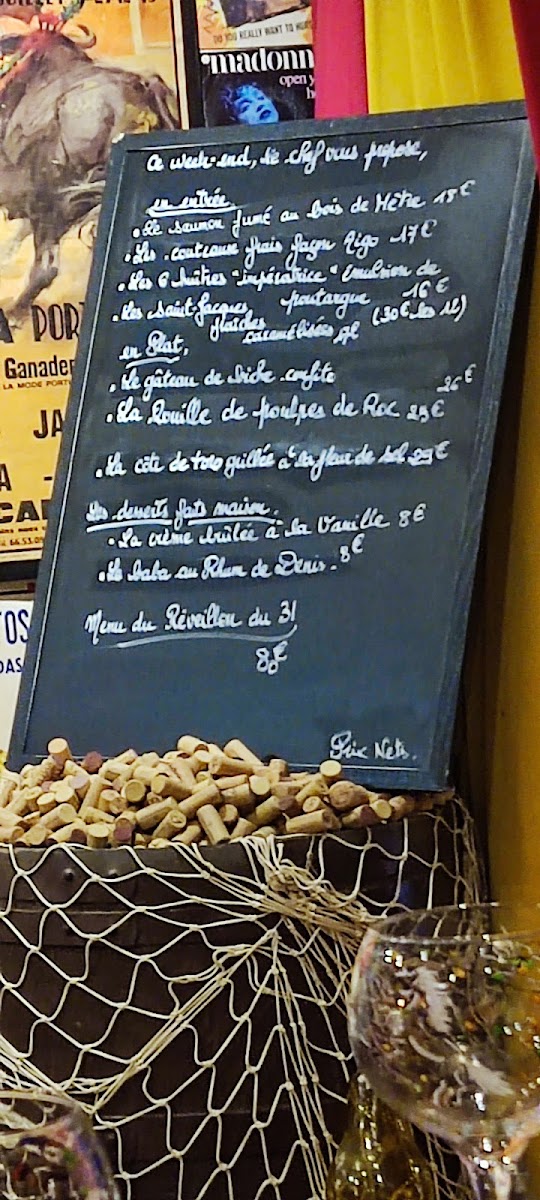 JUILLET
DO YOU REALLY WANT TO HURT
madonna
open y
he
Ce week-end, le chef vous propose,
en entrée,
• Le saumon fumé au bois de Hêtre 18€
• Les couteaux frais façon Rigo 17€
• Les 6 huîtres "impératrice" émulsion de
poutargue 16€
• Les Saint-Jacques
fraîches
caramélisées
(30€ les 12)
en Plat,
• Le gâteau de Biche confite 26€
• La Rouille de poulpes de Roc 25€
• La côte de toro grillée à la fleur de sel 29€
Les desserts faits maison.
• La crème brûlée à la Vanille 8€
• Le baba au Rhum de Denis. 8€
Menu du Réveillon du 31
80€
Prix Nets.
A POR
Ganader
LA MODE PORTU
JA
CA
66.53.0
TOS
DAS